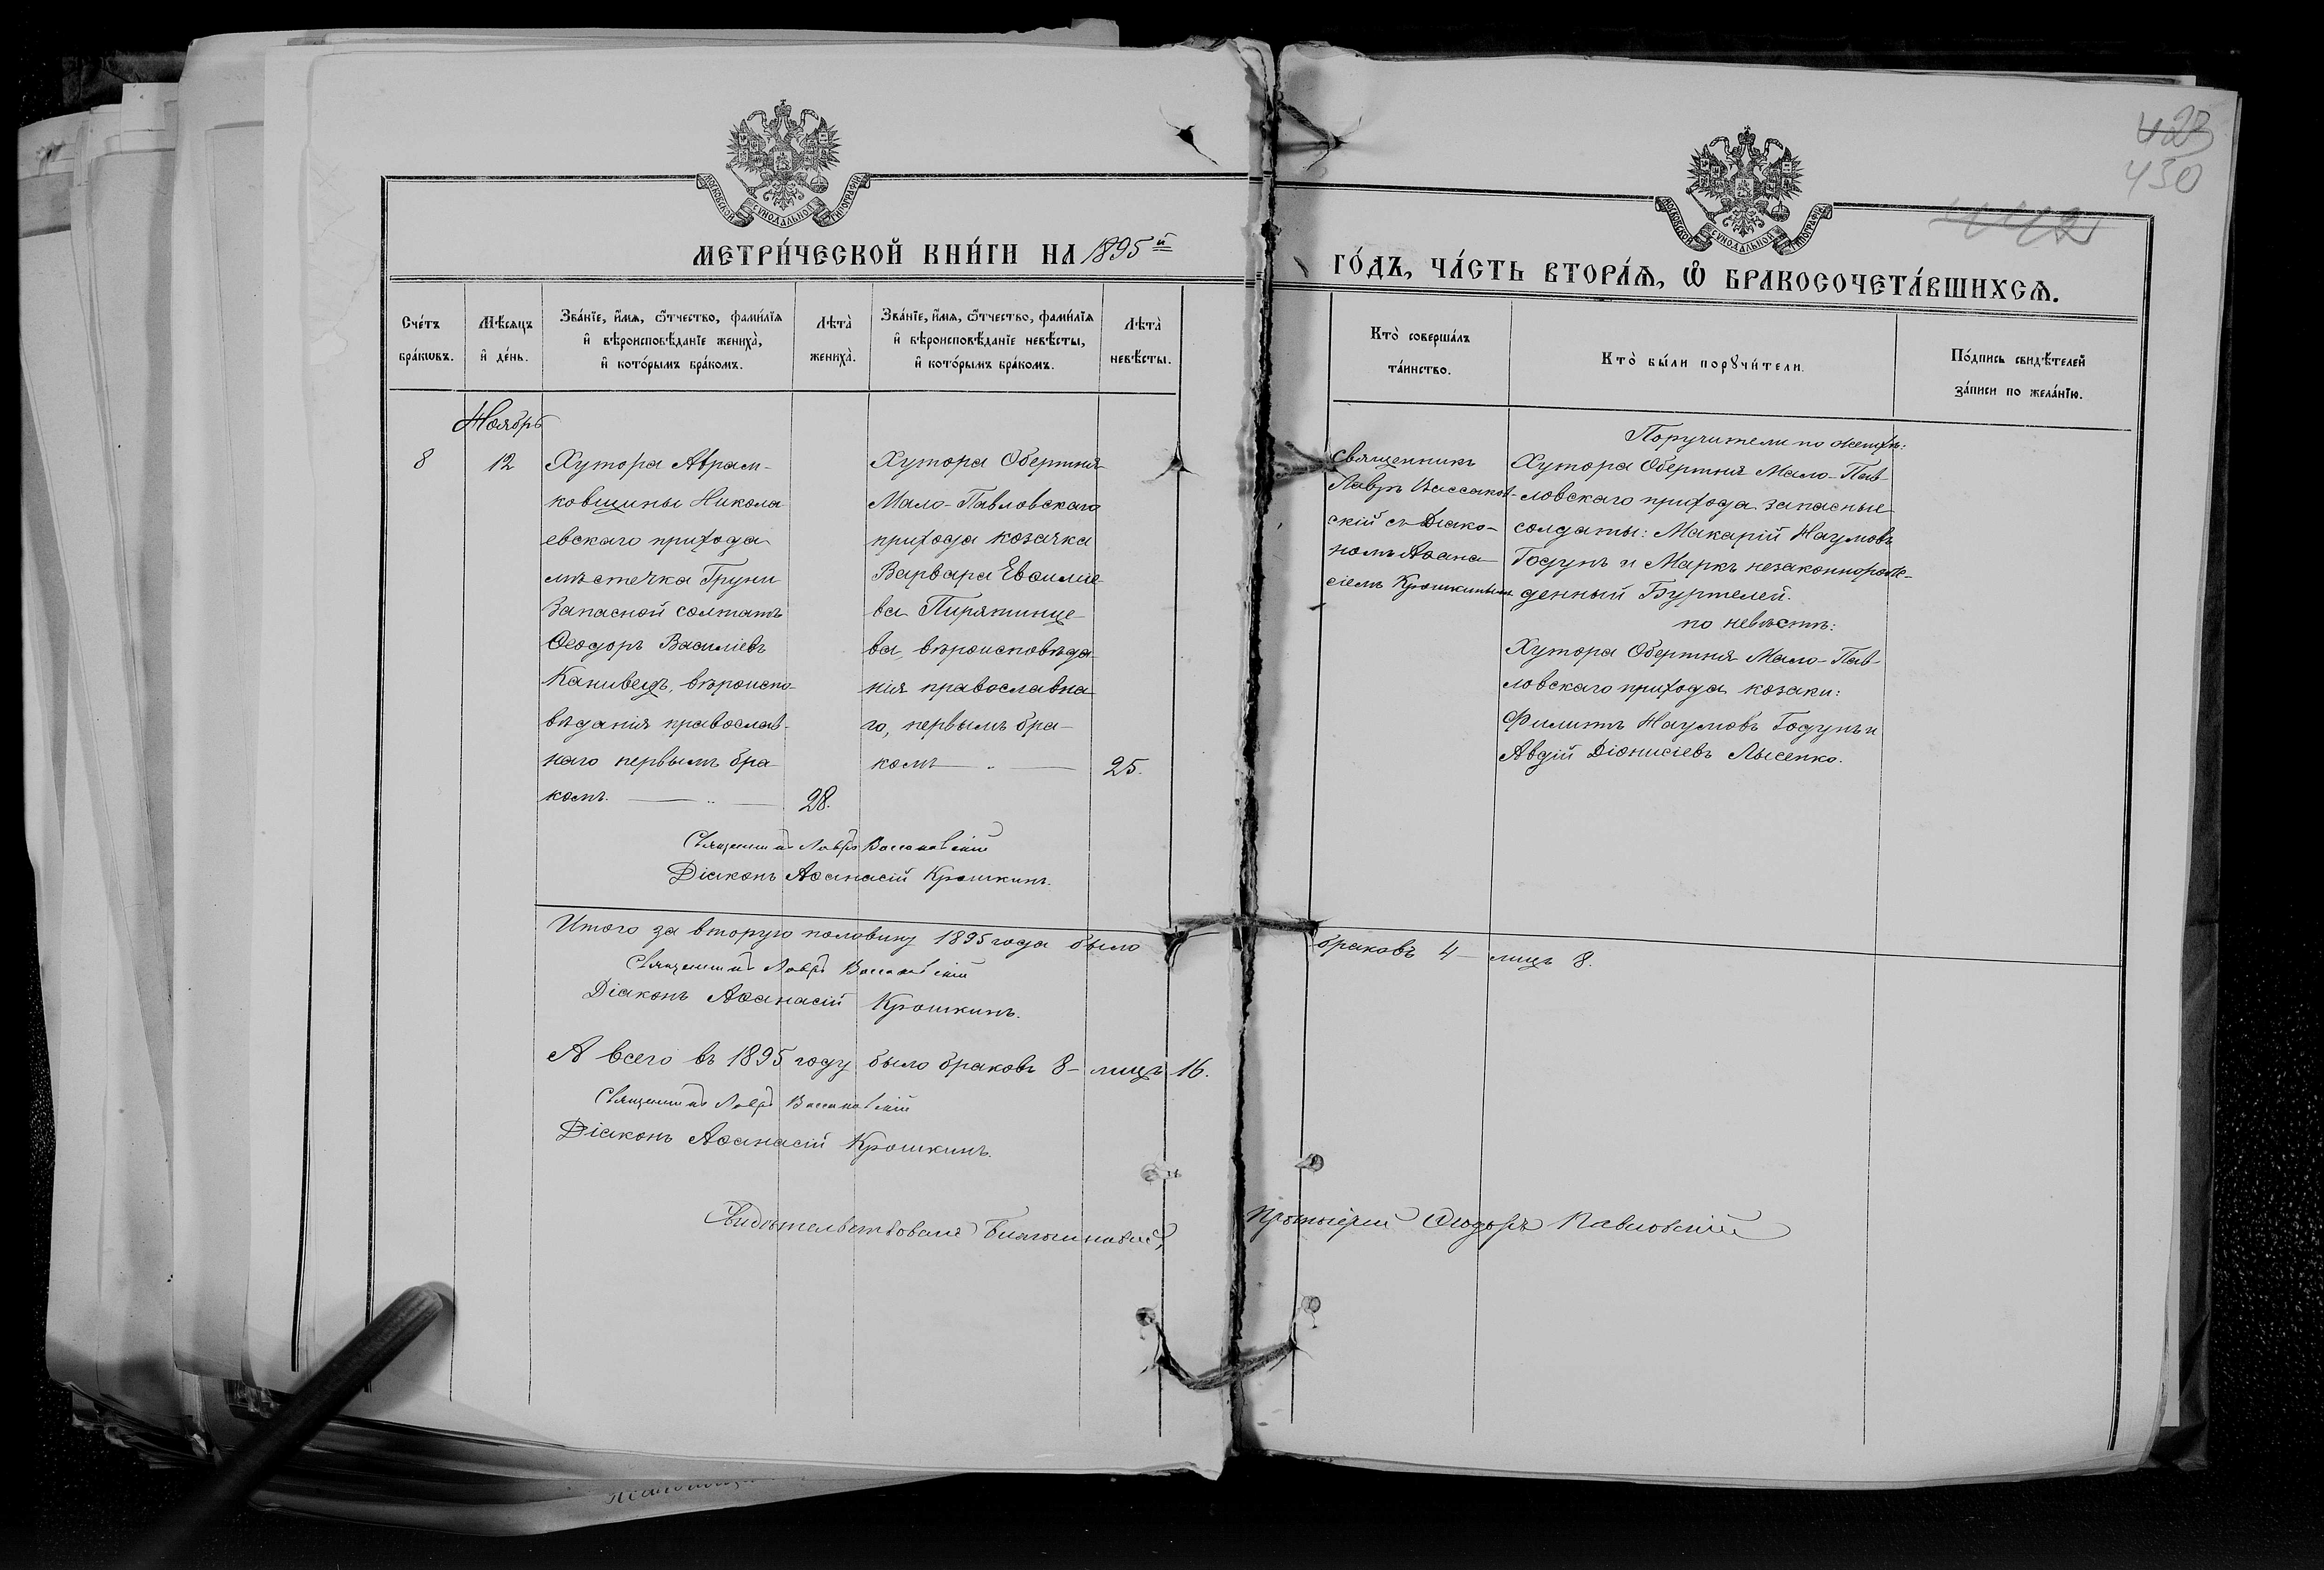 428
450
МОСКОВСКОЙ СѴНОДАЛЬНОЙ ТИПОГРАФІИ
МОСКОВСКОЙ СѴНОДАЛЬНОЙ ТИПОГРАФІИ
МЕТРИ́ЧЕСКОЙ КНИ́ГИ НА 1895й
ГО́ДЪ, ЧА́СТЬ ВТОРА́Ѧ, Ѽ БРАКОСОЧЕТА́ВШИХСѦ.
Сче́тъ
бра́кѡвъ.
Мѣ́сяцъ
и҆ де́нь.
Зва́нїе, и҆́мѧ, ѻ҆́тчество, фами́лїѧ
и҆ вѣроисповѣ́данїе жениха̀,
и҆ кото́рымъ бра́комъ.
Лѣта̀
жениха̀.
Зва́нїе, и҆́мѧ, ѻ҆́тчество, фами́лїѧ
и҆ вѣроисповѣ́данїе невѣ́сты,
и҆ кото́рымъ бра́комъ.
Лѣта̀
невѣ́сты.
Кто̀ соверша́лъ
та́инство.
Кто̀ бы́ли порꙋчи́тели.
По́дпись свидѣ́телей
за́писи по жела́нїю.
Ноябрь
8
12
Хутора Аврам-
ковщины Никола
евскаго прихода
мѣстечка Груни
Запасной солтатъ
Ѳеодоръ Василіевъ
Канивецъ, вѣроиспо-
вѣданія православ-
наго первымъ бра
комъ.
28.
Хутора Обертня
Мало-Павловскаго
прихода козачка
Варвара Евѳиміе
ва Пирятинце
ва, вѣроисповѣда
нія православна
го, первымъ бра-
комъ
25.
Священникъ
Лавръ Вассаков-
скій съ Діако-
номъ Аѳана
сіемъ Крошкинымъ
Поручители по женихѣ:
Хутора Обертня Мало-Пав-
ловскаго прихода запасные
солдаты: Макарій Наумовъ
Годунъ и Маркъ незаконнорож-
денный Буртелей.
по невѣстѣ:
Хутора Обертня Мало-Пав-
ловскаго прихода козаки:
Филиппъ Наумовъ Годунъ и
Авдій Діонисіевъ Лысенко.
Священникъ Лавръ Вассаковскій
Діаконъ Аѳанасій Крошкинъ.
Итого за вторую половину 1895 года было браковъ 4 - лицъ 8.
Священникъ Лавръ Вассаковскій
Діаконъ Аѳанасій Крошкинъ.
А всего въ 1895 году было браковъ 8 - лицъ 16.
Священникъ Лавръ Вассаковскій
Діаконъ Аѳанасій Крошкинъ.
Свидѣтельствовалъ Благочинный, Протоіерей Ѳеодоръ Павловскій